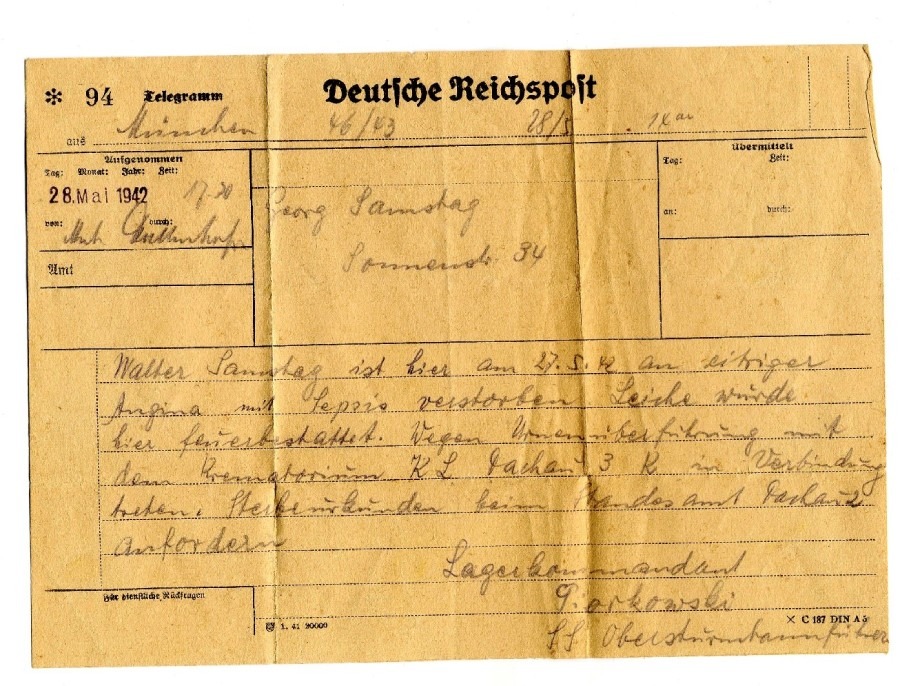 * 94 Telegramm Deutsche Reichspost
aus München 46/43 28/5
Aufgenommen
Tag: Monat: Jahr: Zeit:
28. Mai 1942 17 20
von: durch:
Amt
Georg Samstag
Sonnenstr. 34
Übermittelt
Tag: Zeit:
an: durch:
Walter Samstag ist hier am 27.5.42 an eitriger
Angina mit Sepsis verstorben Leiche wurde
hier feuerbestattet. Wegen Urnenüberführung mit
dem Krematorium KL Dachau 3 K in Verbindung
treten. Sterbeurkunden beim Standesamt Dachau 2
anfordern
Lagerkommandant
Piorkowski
SS Obersturmbannführer
Für dienstliche Rückfragen
1. 41 20000
× C 187 DIN A 5